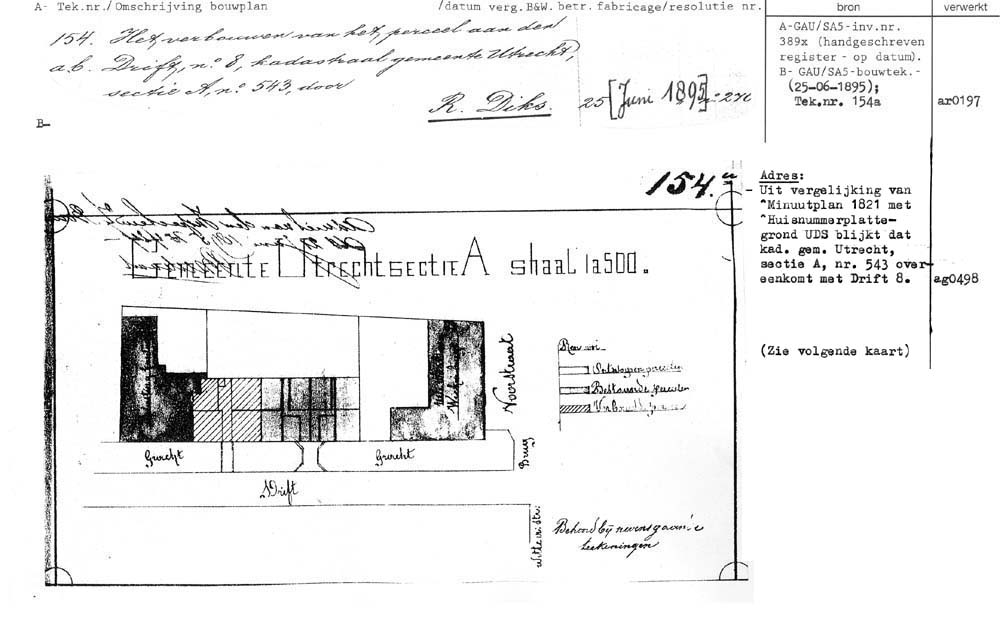 A- Tek.nr./Omschrijving bouwplan /datum verg.B&W.betr.fabricage/resolutie nr.
bron
verwerkt
154. Het verbouwen van het, perceel aan den
a.b. Drift, nº 8, kadastraal gemeente Utrecht,
sectie A, nº 543, door
R. Diks. 25 [Juni 1895]
A-GAU/SA5-inv.nr.
389x (handgeschreven
register - op datum).
B- GAU/SA5-bouwtek.-
(25-06-1895);
Tek.nr. 154a
ar0197
B-
154.a
Adres:
Uit vergelijking van
^Minuutplan 1821 met
^Huisnummerplatte-
grond UDS blijkt dat
kad. gem. Utrecht,
sectie A, nr. 543 over-
eenkomt met Drift 8.
ag0498
(Zie volgende kaart)
Gemeente Utrecht sectie A shaal 1a500.
Voorstraat
Bestaande
Gracht
Gracht
Brug
Drift
Wittevrstr.
Behoord bij nevensgaande
teekeningen